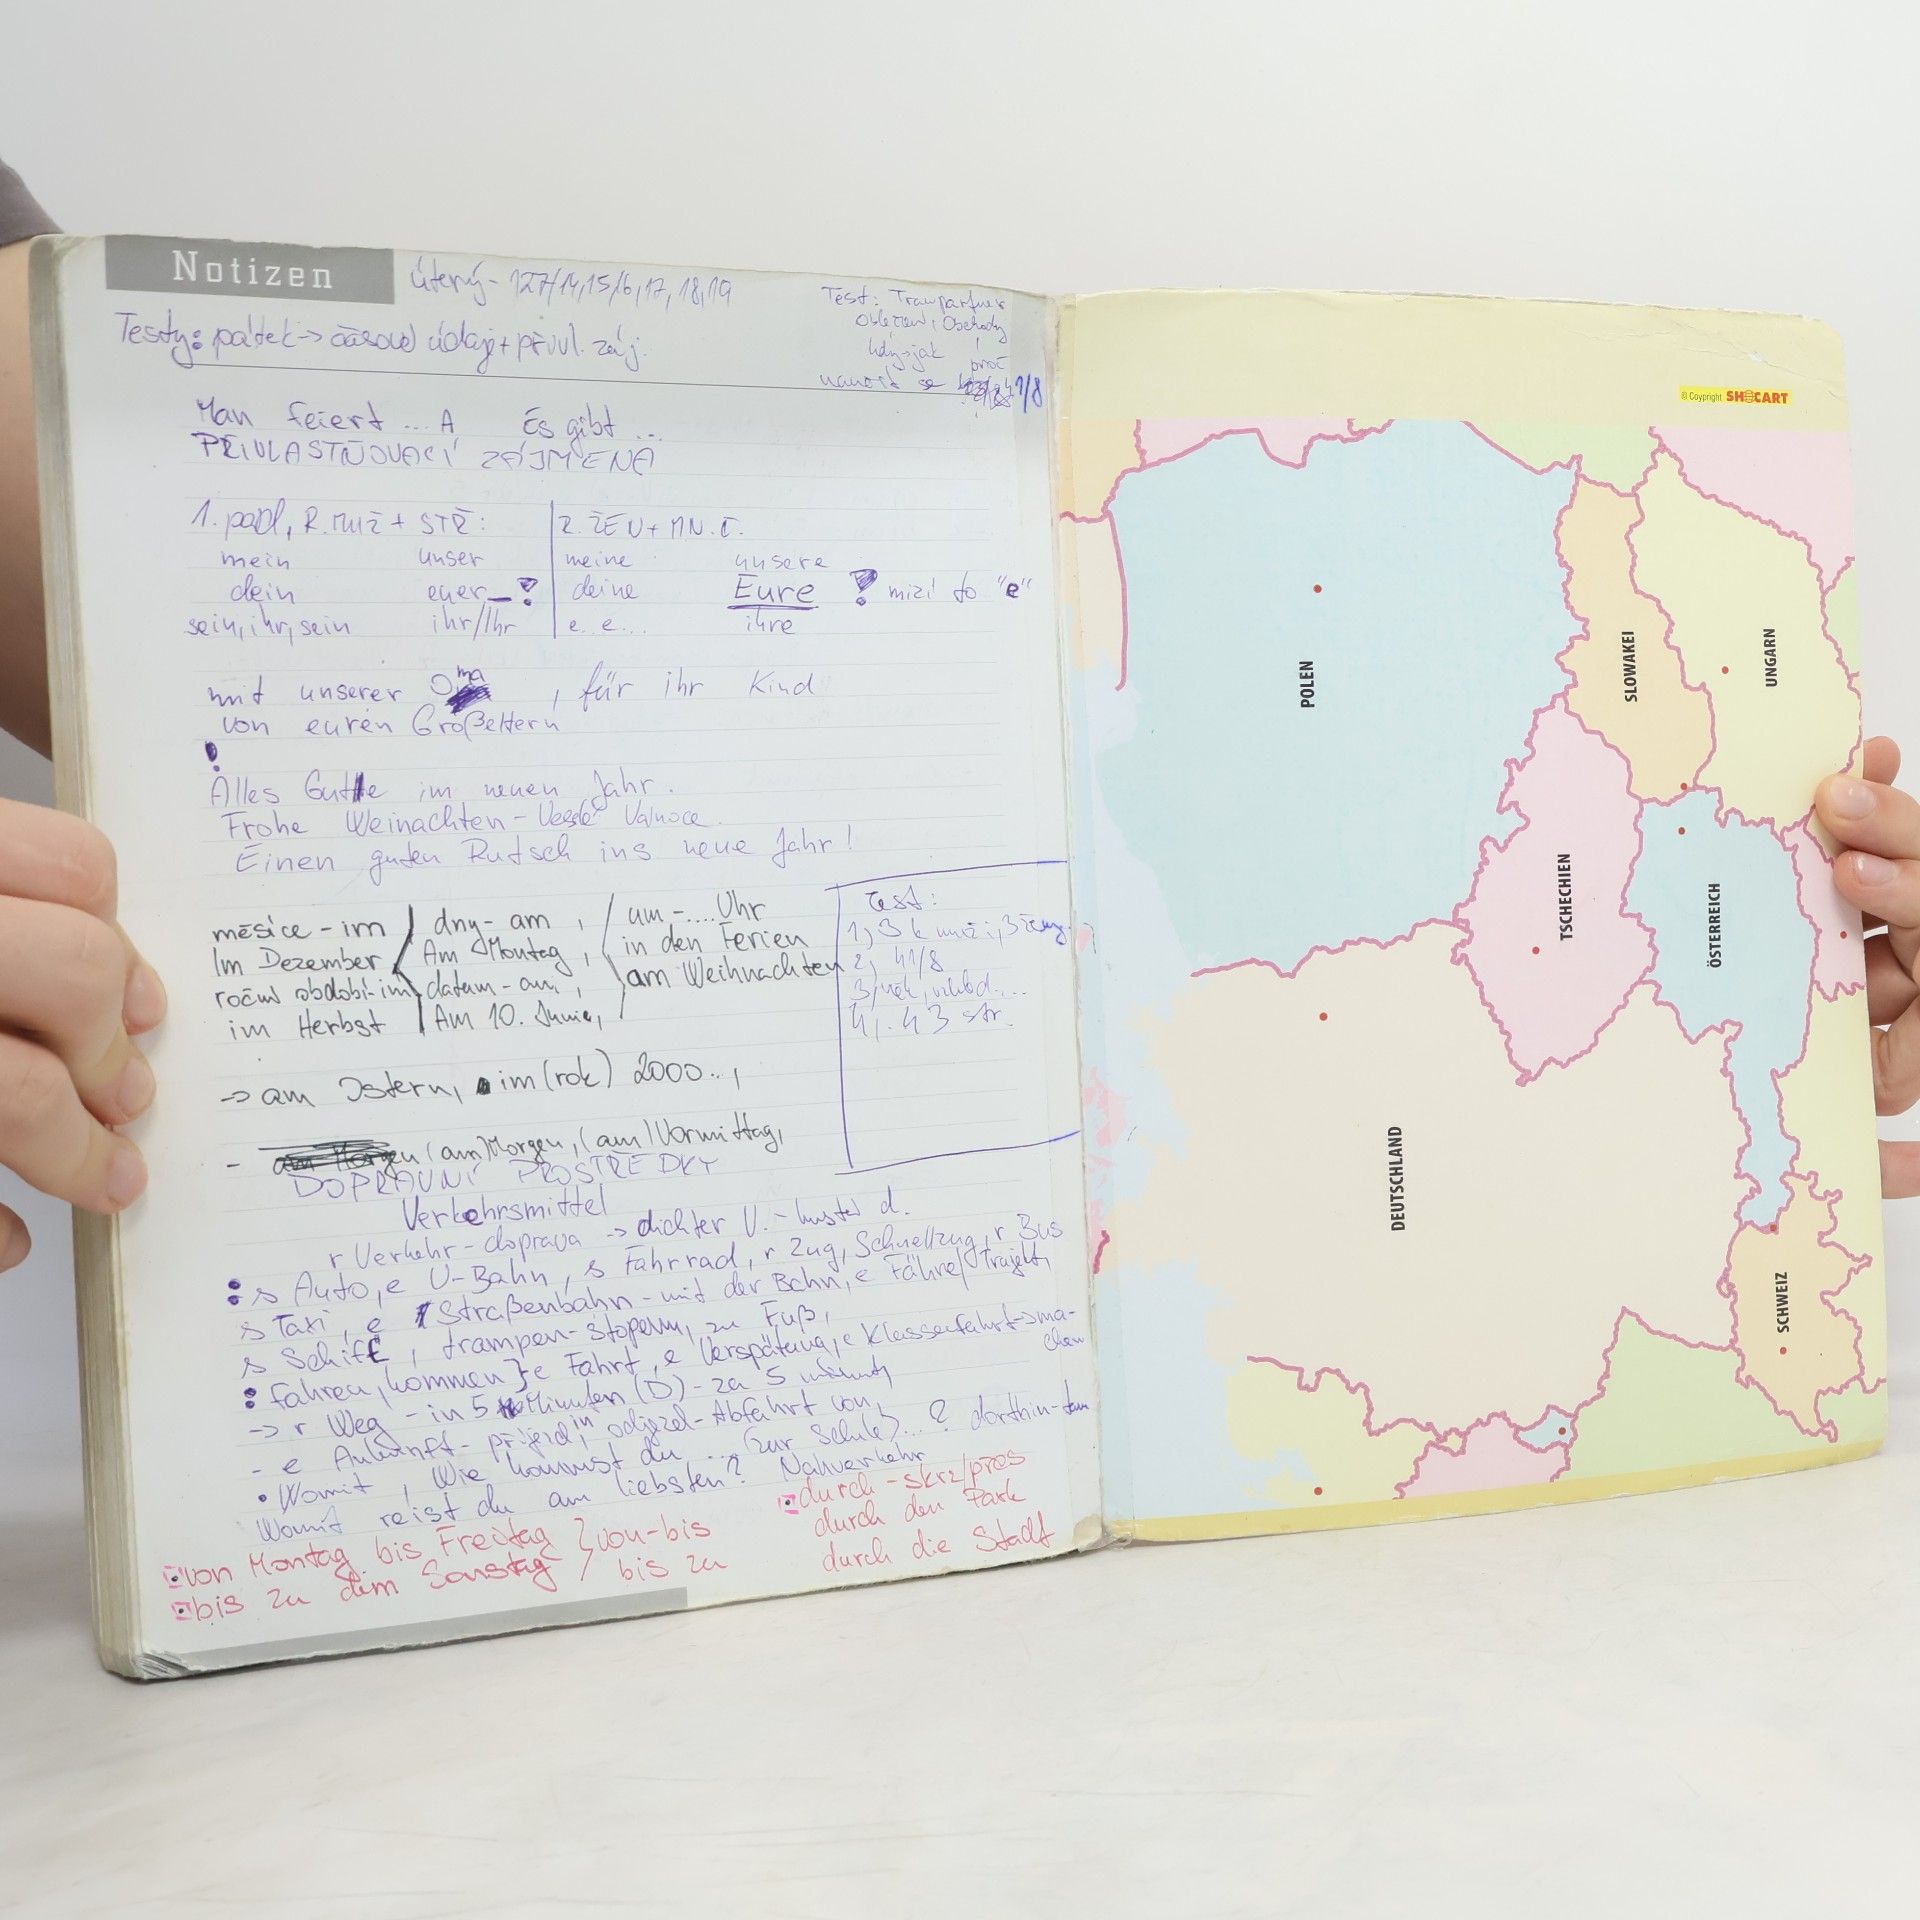 Notizen
úterý - 127/14,15,16,17,18,19
Testy: pátek -> časové údaje + přivl. záj.
Test:
Oblečení, Obchody
kdy -> jak
proč
naučit se 1/8
Man feiert ... A Es gibt ...
PŘIVLASTŇOVACÍ ZÁJMENA
1. pád, R. MUŽ + STŘ: R. ŽEN + MN. Č.
mein unser meine unsere
dein euer_! deine Eure ! mizí to "e"
sein, ihr, sein ihr/Ihr e.. e... ihre
mit unserer Oma, für ihr Kind
von euren Großeltern
!
Alles Gute im neuen Jahr.
Frohe Weinachten - Veselé Vánoce.
Einen guten Rutsch ins neue Jahr!
měsíce - im dny - am, um - .... Uhr
Im Dezember Am Montag, in den Ferien
roční období - im datum - am, am Weihnachten
im Herbst Am 10. Junie,
Test:
1, 3 k muži, 3 ženy
2, 41/8
4, 43 str.
-> am Ostern, im (rok) 2000..,
- am Morgen (am) Morgen, (am) Vormittag,
DOPRAVNÍ PROSTŘEDKY
Verkehrsmittel
r Verkehr - doprava -> dichter V. - hustá d.
: s Auto, e U-Bahn, s Fahrrad, r Zug, Schnellzug, r Bus
s Taxi, e Straßenbahn - mit der Bahn, e Fähre/Trajekt,
s Schiff, trampen - stopem, zu Fuß,
: fahren, kommen } e Fahrt, e Verspätung, e Klassenfahrt -> machen
-> r Weg - in 5 Minuten (D) - za 5 minut
- e Ankunft - příjezd, in odjezd - Abfahrt von,
• Womit, Wie kommst du ... (zur Schule)...? dorthin - tam
Womit reist du am liebsten? Nahverkehr
von Montag bis Freitag } von - bis
bis zu dem Samstag bis zu
durch - skrz/přes
durch den Park
durch die Stadt
© Coypright SHOCART
POLEN
SLOWAKEI
UNGARN
TSCHECHIEN
ÖSTERREICH
DEUTSCHLAND
SCHWEIZ